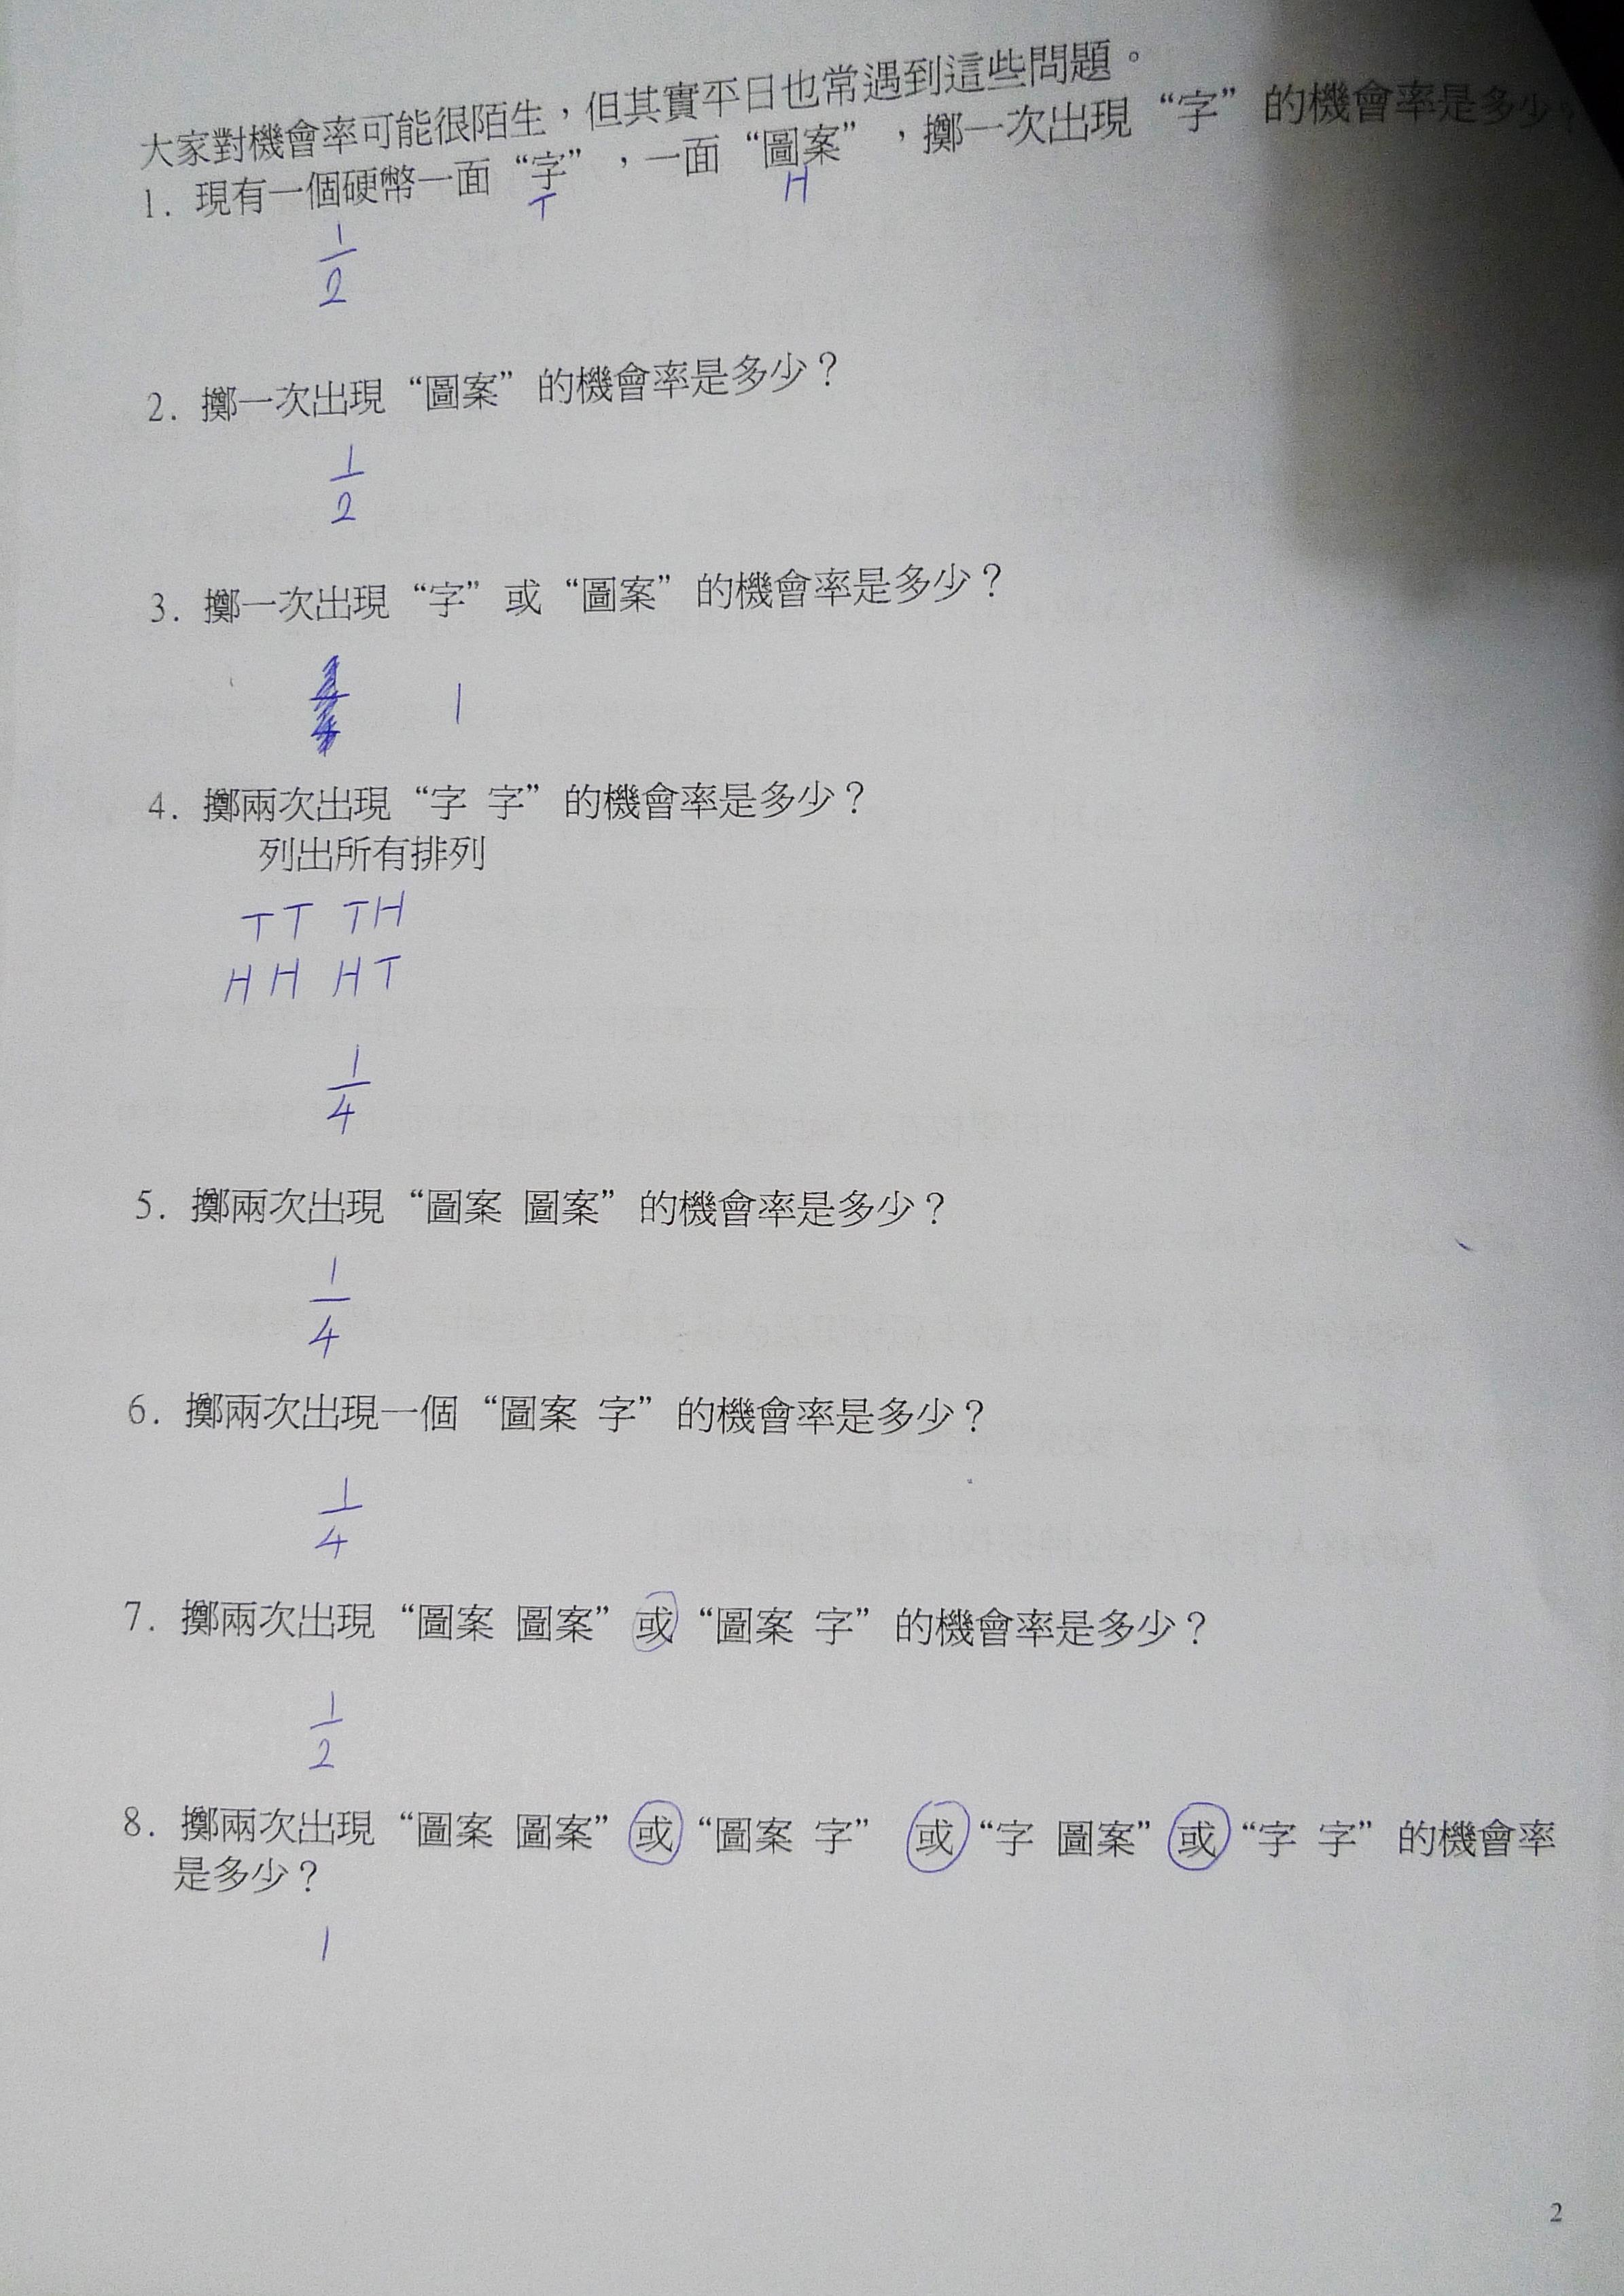 大家對機會率可能很陌生，但其實平日也常遇到這些問題。
1. 現有一個硬幣一面“字”，一面“圖案”，擲一次出現“字”的機會率是多少？
T H
1
2
2. 擲一次出現“圖案”的機會率是多少？
1
2
3. 擲一次出現“字”或“圖案”的機會率是多少？
1
4. 擲兩次出現“字 字”的機會率是多少？
列出所有排列
TT TH
HH HT
1
4
5. 擲兩次出現“圖案 圖案”的機會率是多少？
1
4
6. 擲兩次出現一個“圖案 字”的機會率是多少？
1
4
7. 擲兩次出現“圖案 圖案”或“圖案 字”的機會率是多少？
1
2
8. 擲兩次出現“圖案 圖案”或“圖案 字”或“字 圖案”或“字 字”的機會率
是多少？
1
2